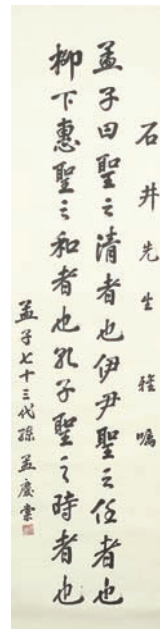 石井先生雅囑
孟子曰聖之清者也伊尹聖之任者也
柳下惠聖之和者也孔子聖之時者也
孟子七十三代孫孟慶棠